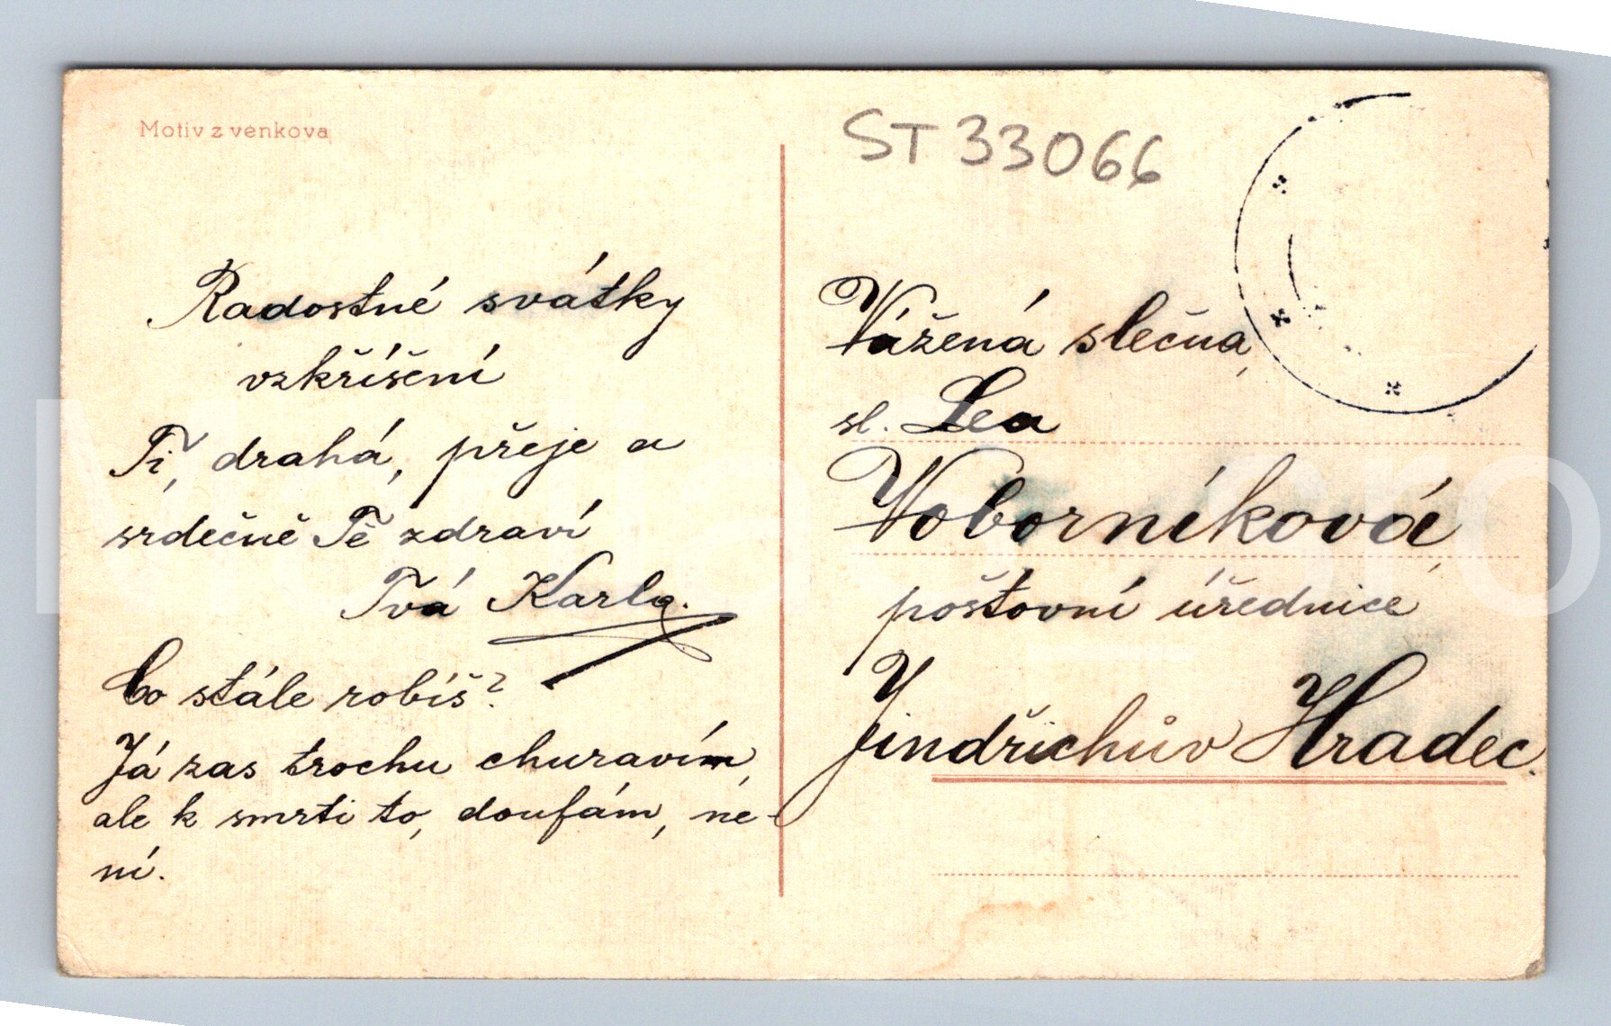 Motiv z venkova
ST 33066
Radostné svátky
vzkříšení
Ti, drahá, přeje a
srdečně Tě zdraví
Tvá Karla.
Co stále robíš?
Já zas trochu churavím,
ale k smrti to, doufám, ne-
ní.
Vážená slečna,
sl. Lea
Voborníková,
poštovní úřednice
Jindřichův Hradec.